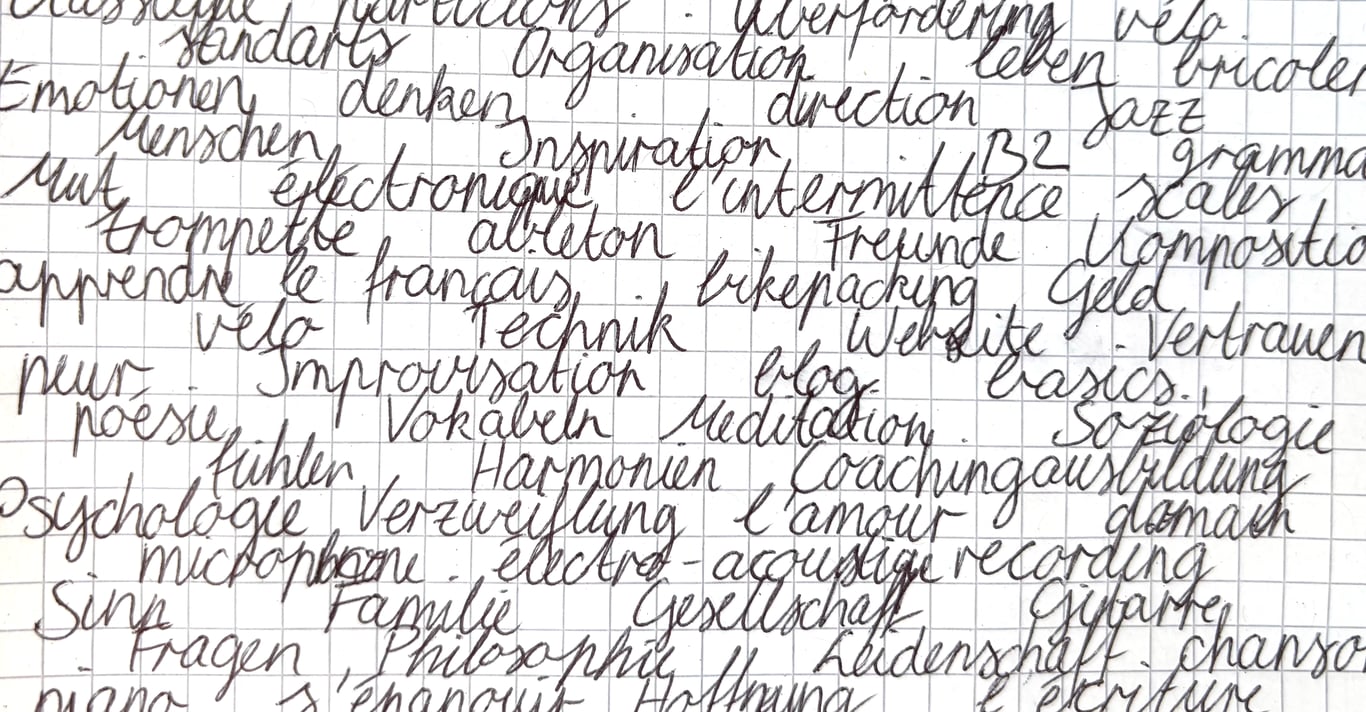 classique, partitions . Überforderung vélo.
standarts Organisation leben bricoler
Emotionen denken direction Jazz
Menschen Inspiration B2 gramma
Mut électronique l'intermittence scales
trompette ableton Freunde Kompositio
apprendre le français, bikepacking Geld
vélo Technik Website - Vertrauen
peur, . Improvisation blog basics.,
poésie, Vokabeln Meditation. Soziologie
fühlen Harmonien Coachingausbildung
Psychologie Verzweiflung l'amour demain
microphone . électro-acoustique recording
Sinn Familie Gesellschaft Gitarre,
- Fragen, Philosophie, Leidenschaft. chanso
piano s'épanouir Hoffnung l'écriture